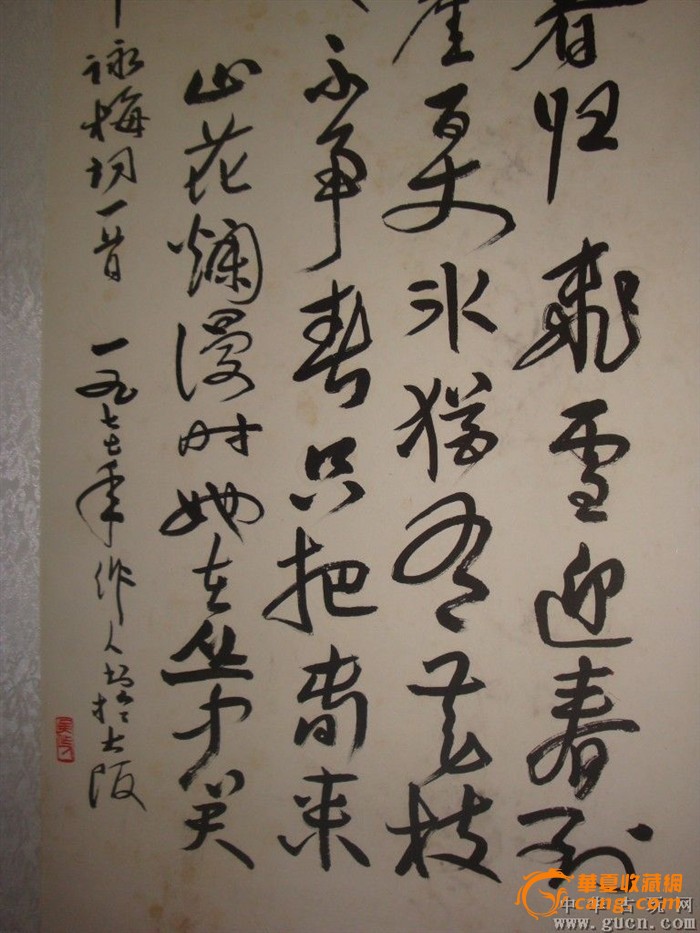 春归飛雪迎春到
崖百丈冰猶有花枝
不争春只把春来
山花爛漫时她在丛中笑
詠梅词一首 一九七七年作人书於大阪
華夏收藏網
cang.com
中华古玩网
www.gucn.com